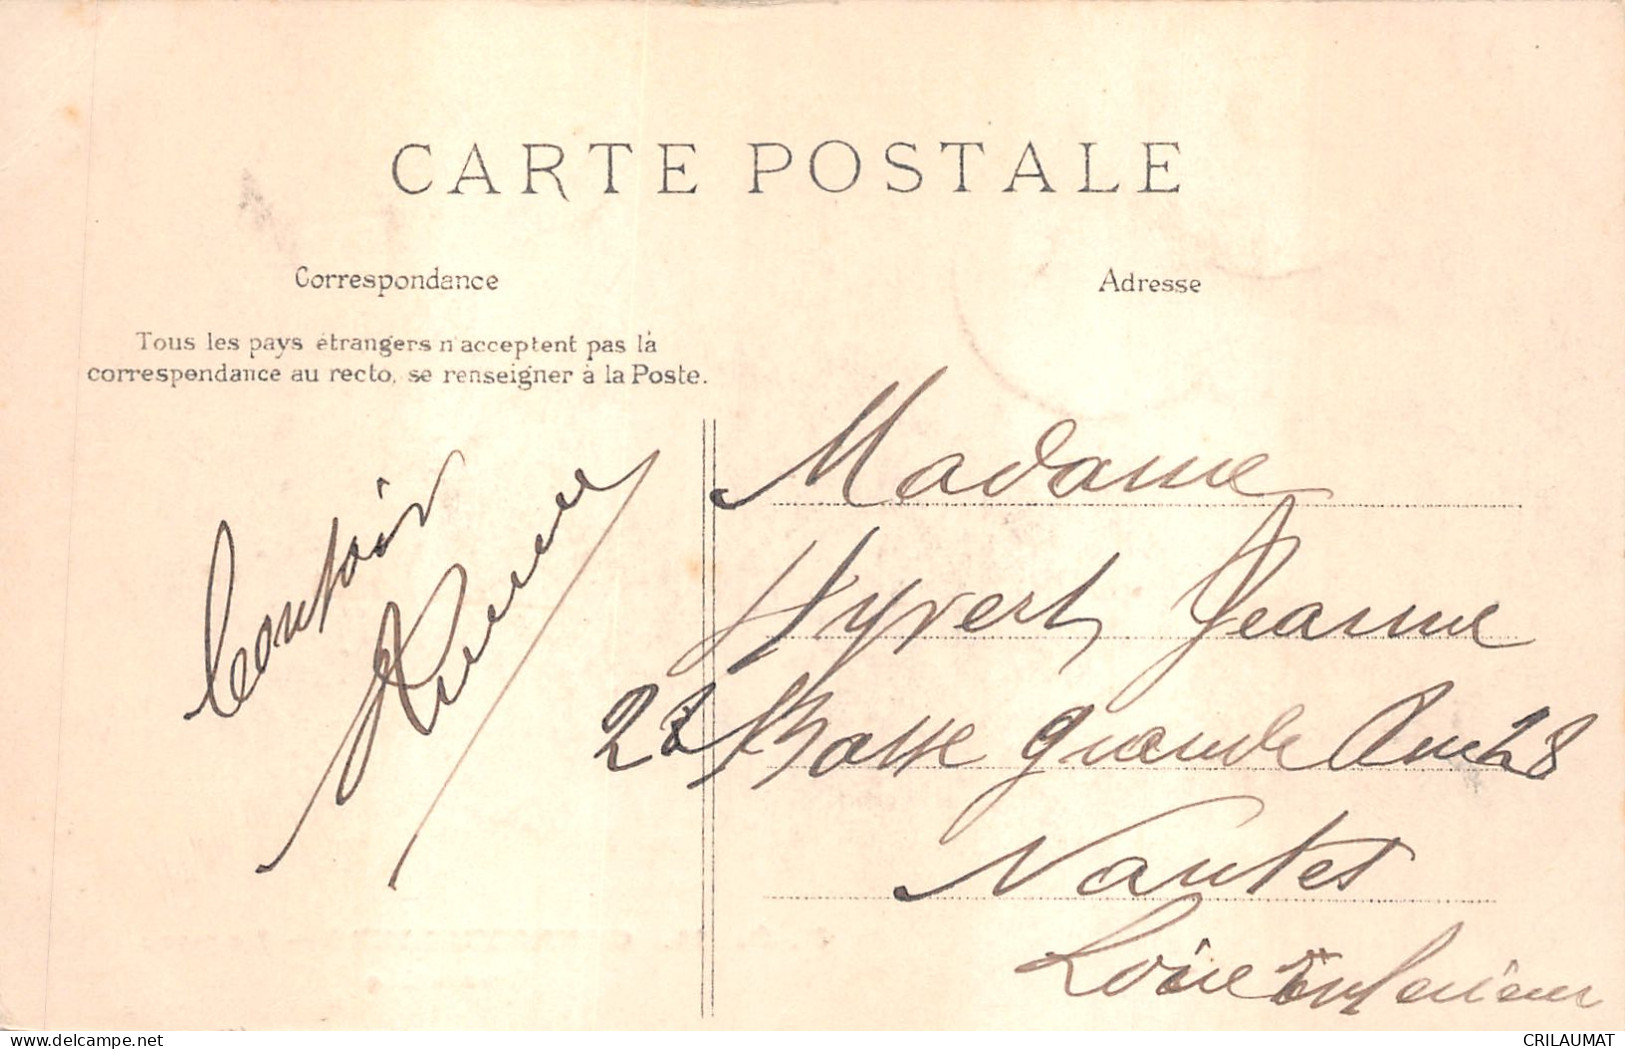 CARTE POSTALE
Correspondance
Adresse
Tous les pays étrangers n'acceptent pas la
correspondance au recto, se renseigner à la Poste.
Madame
Hyvert Jeanne
Basse grande Rue 28
Nantes
Loire Inférieure
delcampe.net
CRILAUMAT